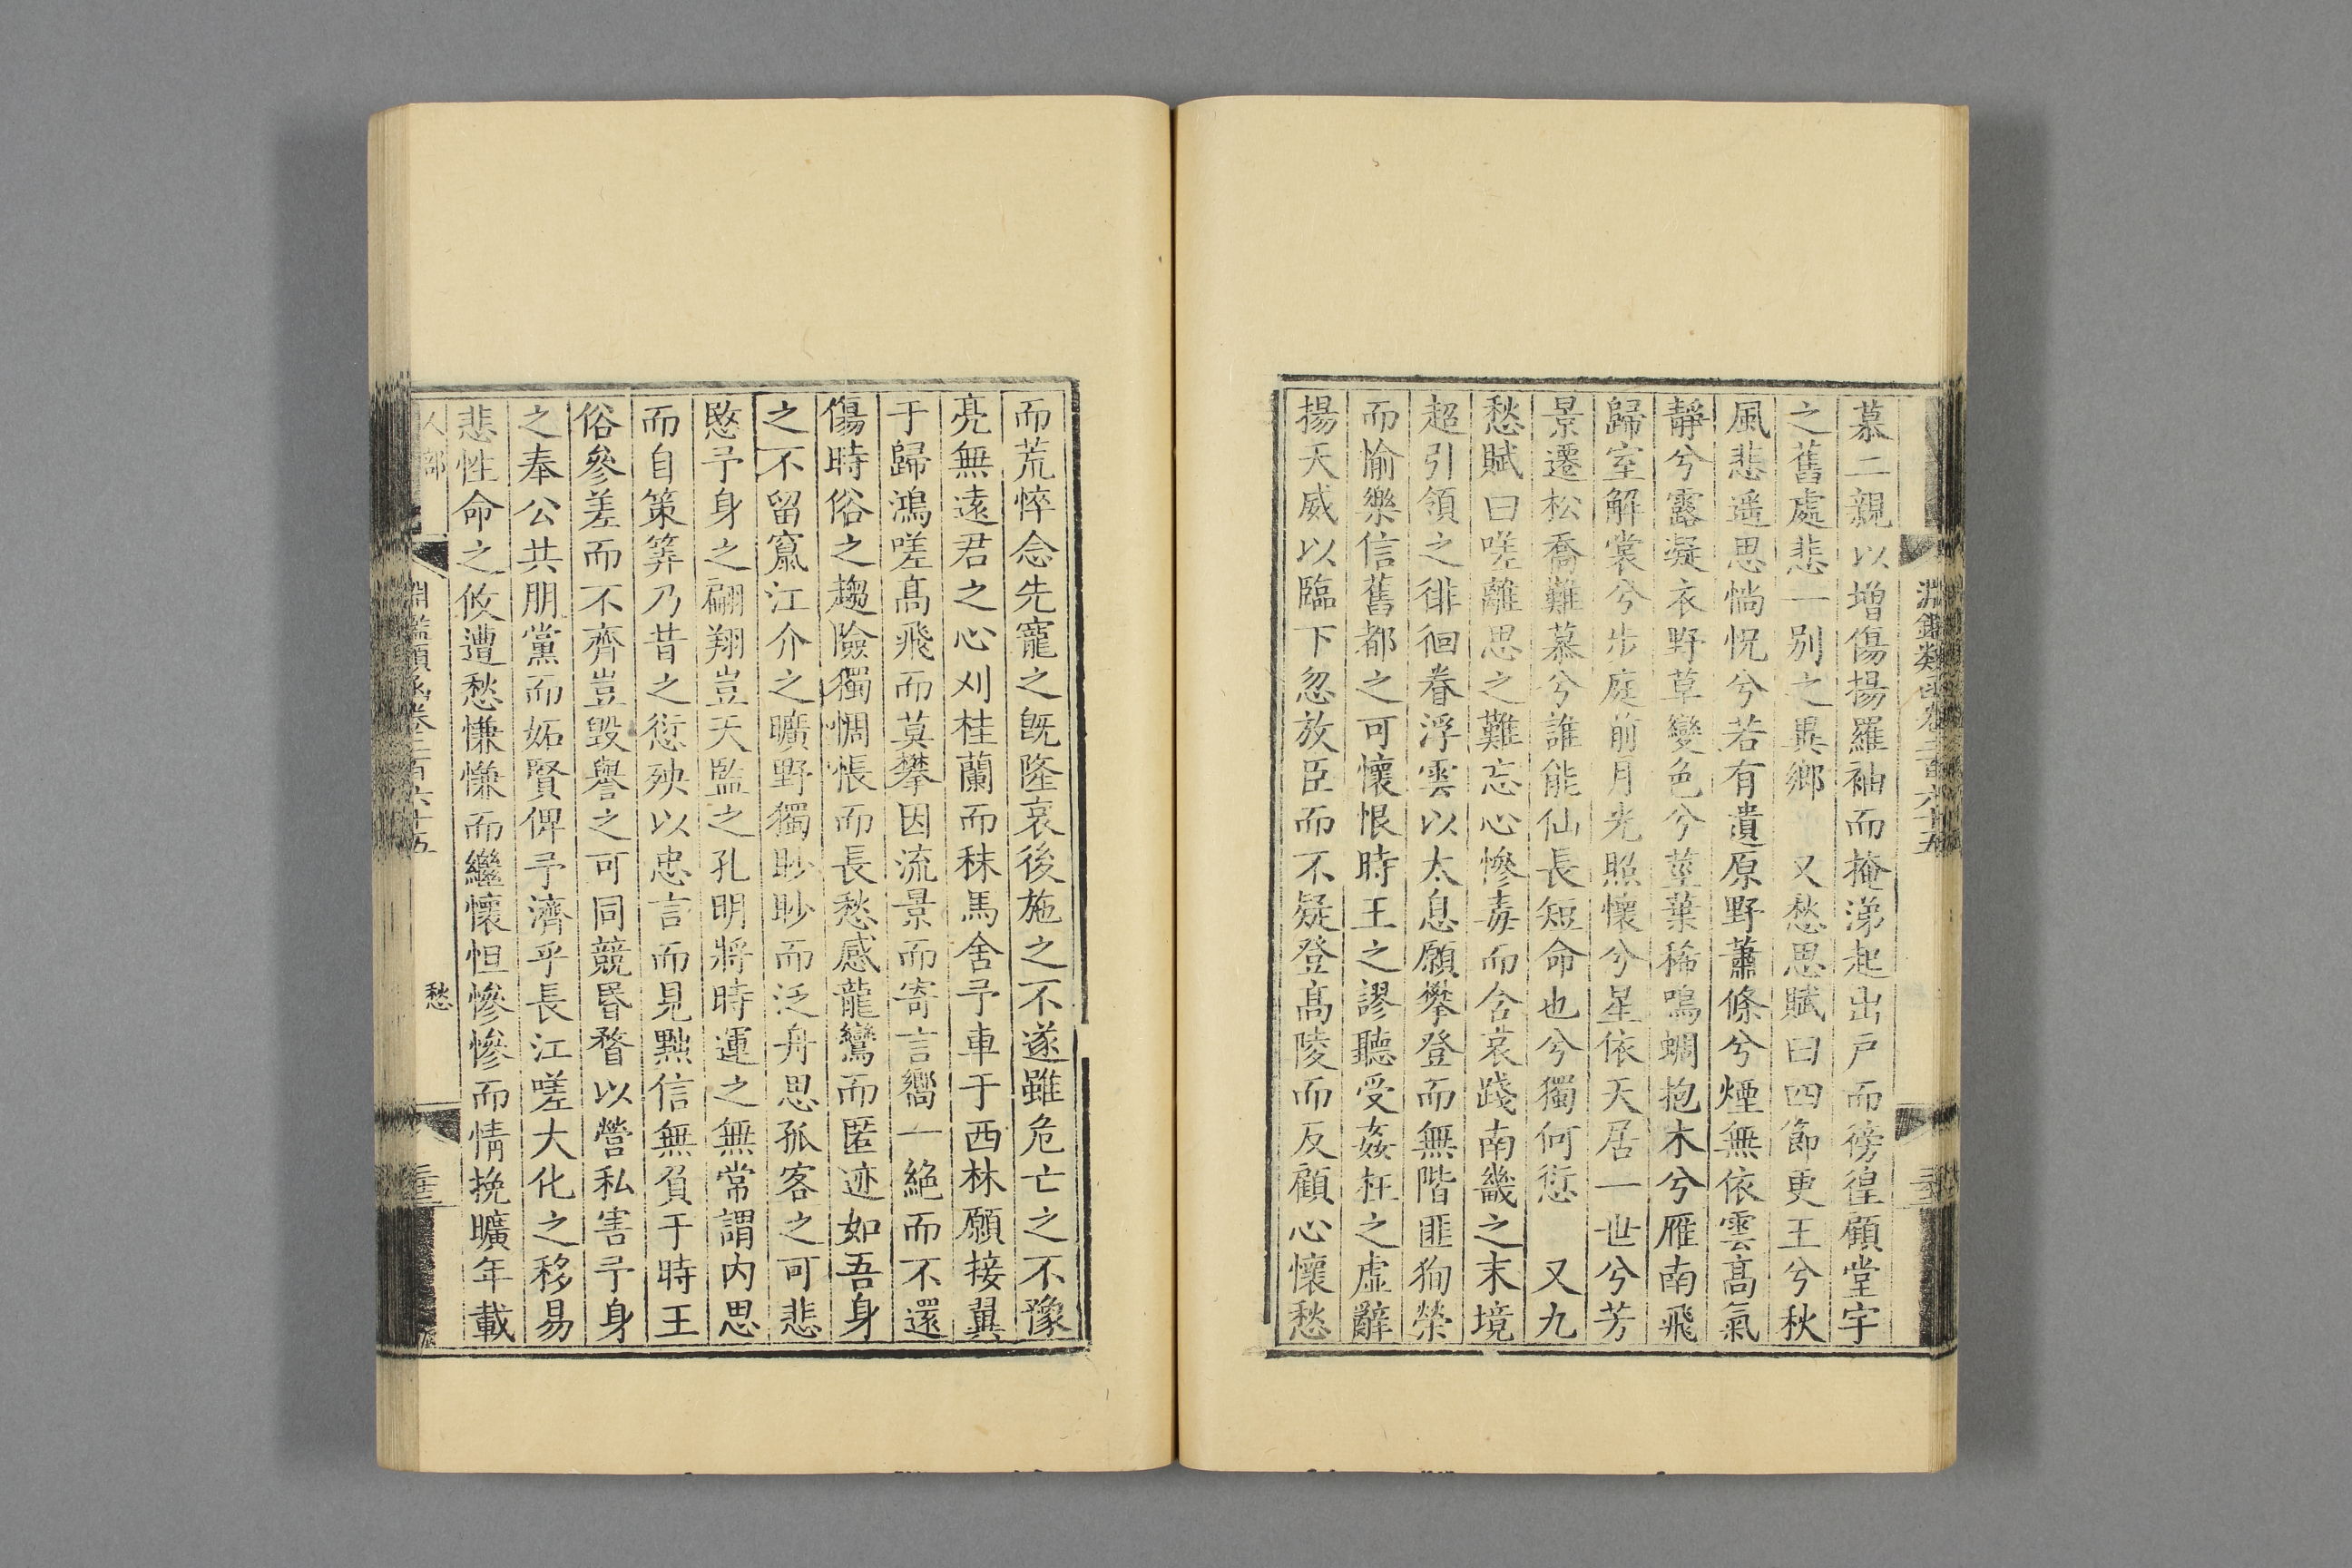 淵鑑類函卷二百六十五
慕二親以增傷揚羅袖而掩涕起出戶而徬徨顧堂宇
之舊處悲一别之異鄉 又愁思賦曰四節更王兮秋
風悲遥思惝怳兮若有遺原野蕭條兮煙無依雲髙氣
靜兮露凝衣野草變色兮莖葉稀鳴蜩抱木兮雁南飛
歸室解裳兮步庭前月光照懷兮星依天居一世兮芳
景遷松喬難慕兮誰能仙長短命也兮獨何愆 又九
愁賦曰嗟離思之難忘心慘毒而含哀踐南畿之末境
超引領之徘徊眷浮雲以太息願攀登而無階匪徇榮
而愉樂信舊都之可懷恨時王之謬聽受姦枉之虛辭
揚天威以臨下忽放臣而不疑登髙陵而反顧心懷愁
而荒悴念先寵之既隆哀後施之不遂雖危亡之不豫
亮無遠君之心刈桂蘭而秣馬舍予車于西林願接翼
于歸鴻嗟髙飛而莫攀因流景而寄言嚮一絶而不還
傷時俗之趨險獨惆悵而長愁感龍鸞而匿迹如吾身
之不留竄江介之曠野獨眇眇而泛舟思孤客之可悲
愍予身之翩翔豈天監之孔明將時運之無常謂内思
而自策筭乃昔之愆殃以忠言而見黜信無負于時王
俗參差而不齊豈毁譽之可同競昬瞀以營私害予身
之奉公共朋黨而妬賢俾予濟乎長江嗟大化之移易
悲性命之攸遭愁慊慊而繼懷怛慘慘而情挽曠年載
人部
淵鑑類函卷二百六十五
愁